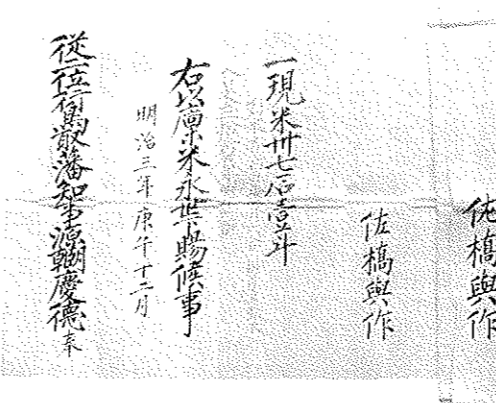 佐橋與作
佐橋與作
一現米卅七石壹斗
右以廩米永世賜候事
明治三年庚午十二月
従二位鳥取藩知事源朝慶徳奉